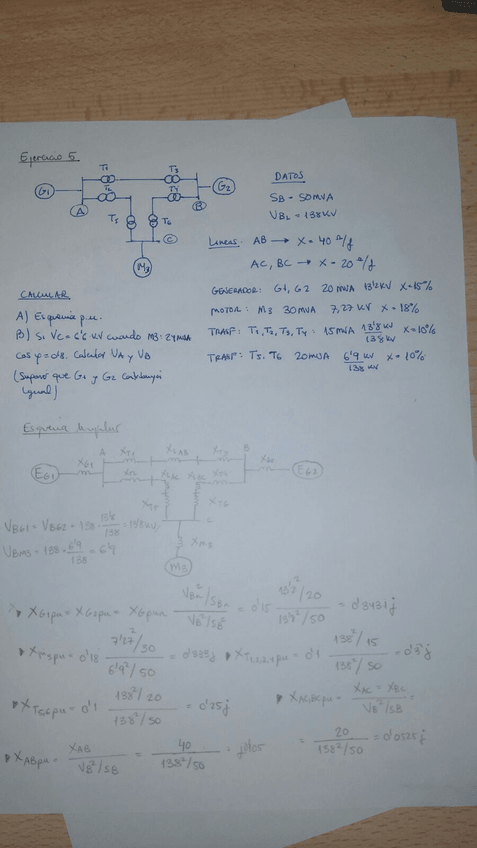 Ejercicio 5
T1
T3
G1
T2
T4
G2
A
B
T5
T6
C
M3
DATOS
SB = 50MVA
VBL = 138KV
Lineas: AB → X = 40 Ω/f
AC, BC → X = 20 Ω/f
GENERADOR: G1, G2 20 MVA 13'2 KV X=15%
MOTOR: M3 30MVA 7,27 KV X=18%
TRASF: T1, T2, T3, T4: 15MVA 13'8 KV / 138 KV X=10%
TRASF: T5, T6 20MVA 6'9 KV / 138 KV X=10%
CALCULAR
A) Esquema p.u.
B) Si VC = 6'6 KV cuando M3: 24MVA
cos φ = 0'8. Calcular VA y VB
(Suponer que G1 y G2 contribuyen
igual)
Esquema
A
XG1
XT1
XLAB
B
EG1
EG2
XT6
C
XM3
M3
VBG1 = VBG2 = 138 · 13'8 / 138 = 13'8 KV
VBM3 = 138 · 6'9 / 138 = 6'9
XG1pu = XG2pu = VBn²/SBn / VB²/SB = 0'15 13'2²/20 / 13'8²/50 = 0'3431j
0'18 7'27²/30 / 6'9²/50 = 0'333j
0'1 138²/15 / 138²/50 = 0'3j
0'1 138²/20 / 138²/50 = 0'25j
XAC = XBC / VB²/SB =
XABpu = XAB / VB²/SB = 40 / 138²/50 = j0'105
= 20 / 138²/50 = 0'0525j